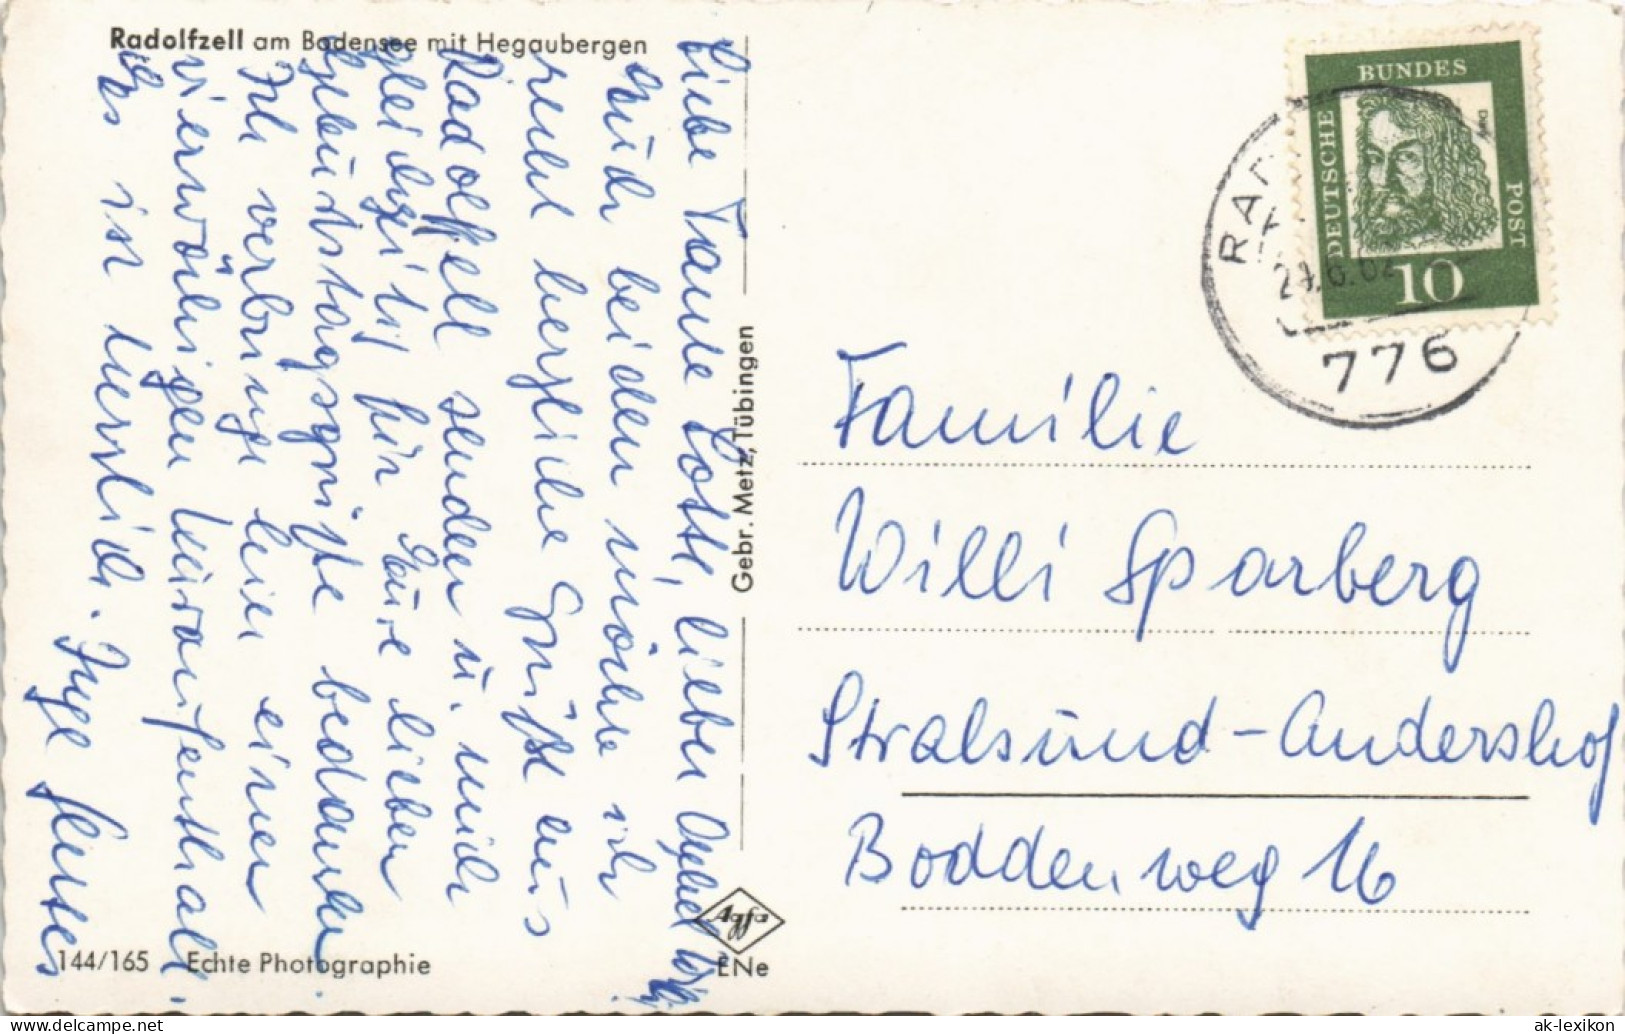 Radolfzell am Bodensee mit Hegaubergen
Liebe Tante Lotte, lieber Onkel Willi
Euch beiden möchte ich
recht herzliche Grüße aus
Radolfzell senden u. mich
gleichzeitig für Eure lieben
Geburtstagsgrüße bedanken
Ich verbringe hier einen
vierwöchigen Kuraufenthalt.
Es ist herrlich. Inge
Gebr. Metz, Tübingen
BUNDES
DEUTSCHE
POST
10
RAD
24.6.62
776
Familie
Willi Sparberg
Stralsund-Andershof
Boddenweg 16
144/165 Echte Photographie
Agfa
ENe
www.delcampe.net
ak-lexikon